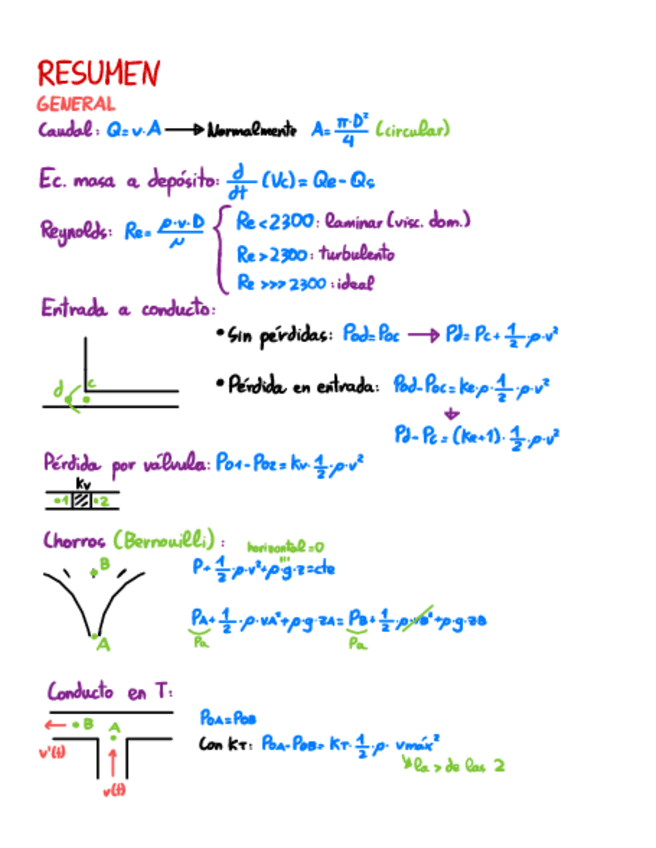 RESUMEN
GENERAL
Caudal: Q=v·A → Normalmente A= π·D²/4 (circular)
Ec. masa a depósito: d/dt (Vc) = Qe-Qs
Reynolds: Re= ρ·v·D/μ
Re<2300: laminar (visc. dom.)
Re>2300: turbulento
Re >>> 2300: ideal
Entrada a conducto:
• Sin pérdidas: Pod=Poc → Pd= Pc+ 1/2·ρ·v²
d c
• Pérdida en entrada: Pod-Poc= Ke·ρ·1/2·ρ·v²
↓
Pd-Pc=(Ke+1)·1/2·ρ·v²
Pérdida por válvula: Po1-Po2= Kv·1/2·ρ·v²
Kv
·1 ·2
Chorros (Bernouilli):
horizontal=0
B
P+1/2·ρ·v²+ρ·g·z=cte
PA+1/2·ρ·vA²+ρ·g·zA= PB+1/2·ρ·vB²+ρ·g·zB
Pa Pa
A
Conducto en T:
← ·B A
PoA=PoB
v'(t)
Con KT: PoA-PoB= KT·1/2·ρ· vmáx²
la > de las 2
v(t)